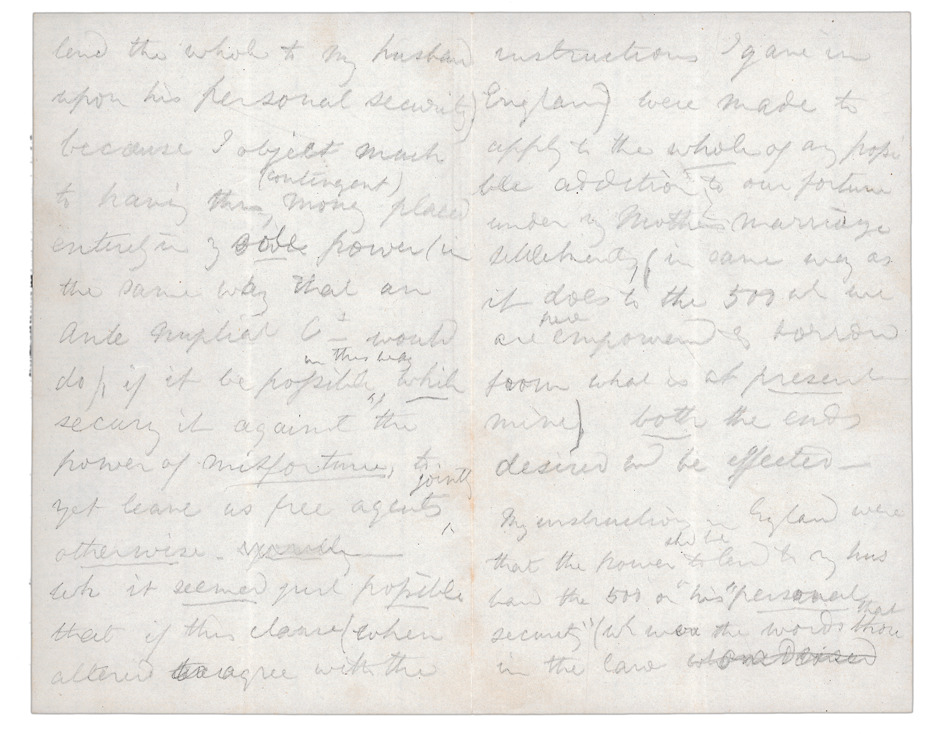 lend the whole to my husband
upon his personal security)
because I object much
(contingent)
to having this money placed
entirely in my sole power (in
the same way that an
Ante Nuptial Ct would
in this way
do), if it be possible, while
securing it against the
power of misfortune, to
jointly
yet leave us free agents
otherwise.
wh it seemed just possible
that if this clause (when
altered to agree with the
instructions I gave in
England) were made to
apply to the whole of any possi
ble addition to our fortune
under my Mother's marriage
settlements, (in same way as
it does to the 500 wh we
here
are empowered to borrow
from what is at present
mine) both the ends
desired wd be effected —
My instructions in England were
shd be
that the power to lend to my hus
band the 500 on "his personal
that
security" (wh were the words those
in the law